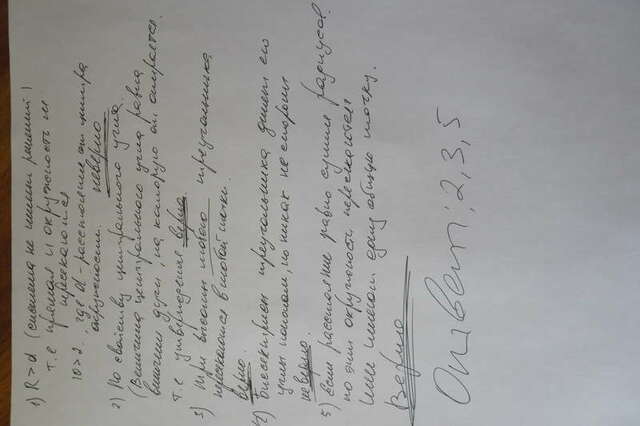 1) R>d (система не имеет решений)
т.е прямая и окружность не
пересекаются
10>2. где d - расстояние от центра
окружности. неверно
2) По свойству центрального угла
(Величина центрального угла равна
величине дуги, на которую он опирается.
т.е утверждение верно.
3) три высоты любого треугольника
пересекаются в одной точке.
верно.
4) биссектриса треугольника делит его
углы пополам, но никак не стороны
неверно.
5) если расстояние равно сумме радиусов.
то эти окружности пересекаются
или имеют одну общую точку.
Верно
Ответ: 2, 3, 5